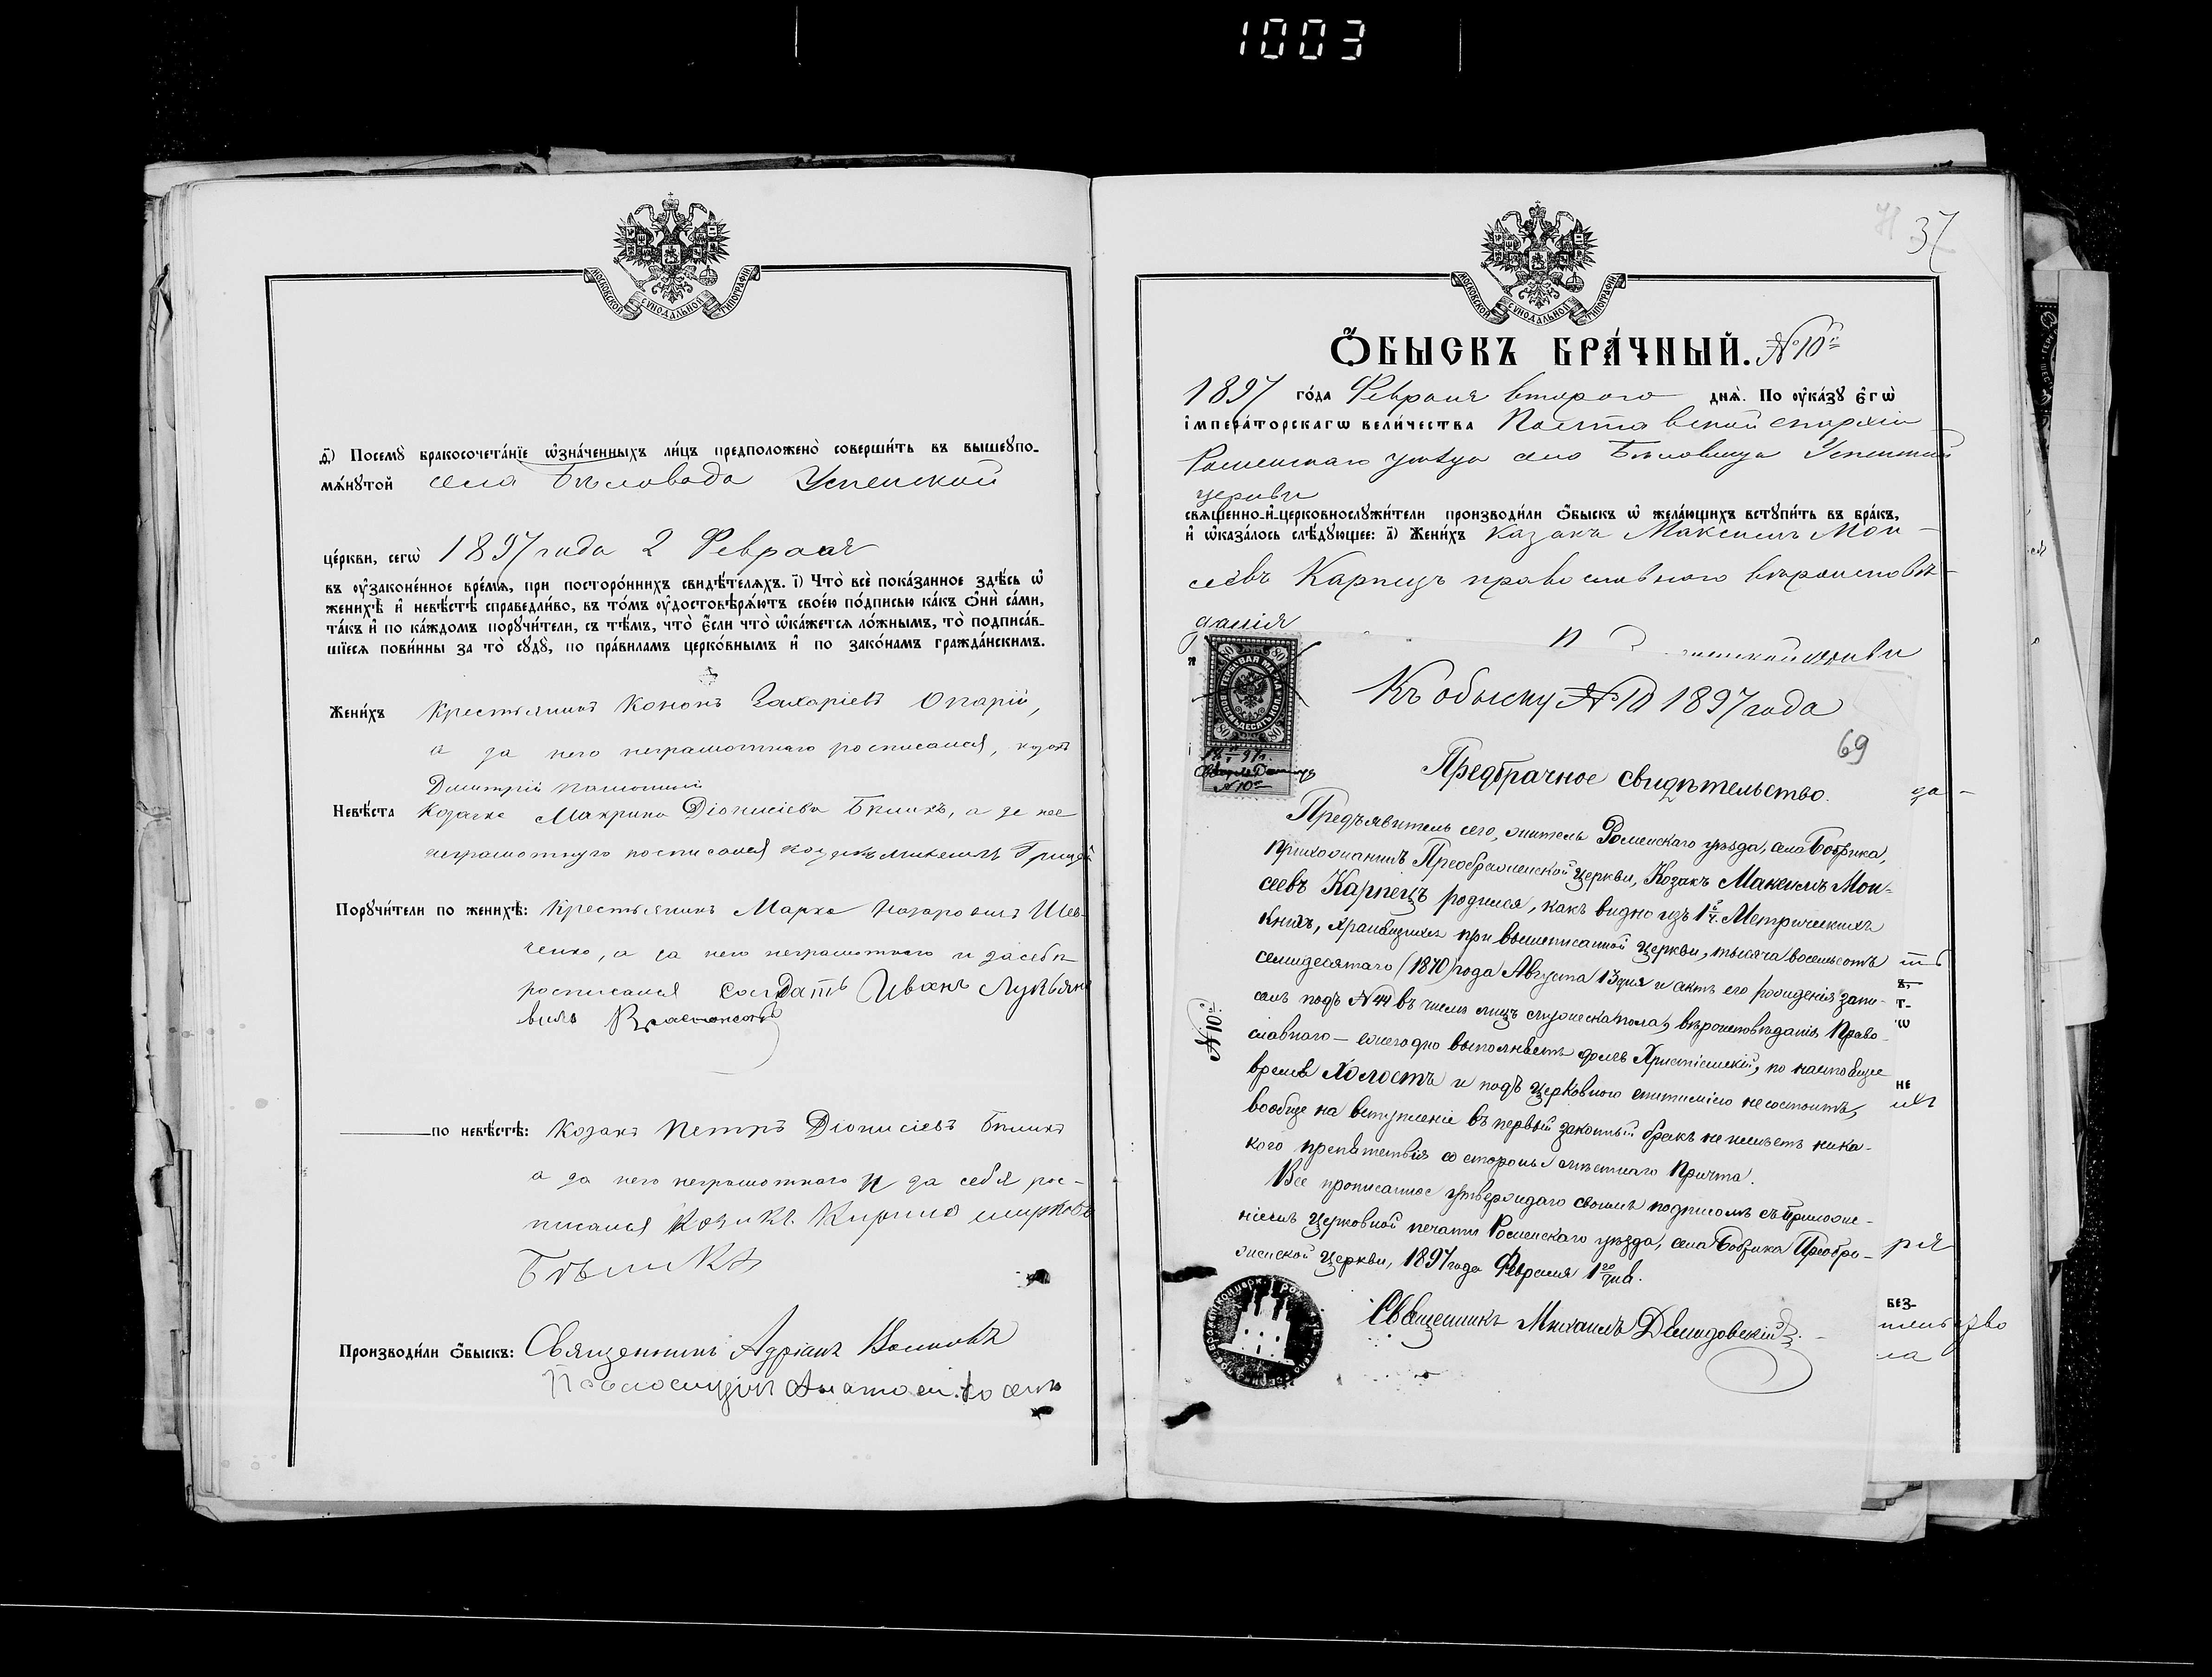 1003
МОСКОВСКОЙ СУНОДАЛЬНОЙ ТИПОГРАФІИ
ѳ҃) Посемꙋ̀ бракосочета́нїе ѡ҆зна́ченныхъ ли́цъ предположено̀ соверши́ть въ вышеꙋпо-
мѧ́нꙋтой села Бѣловода Успенской
це́ркви, сегѡ̀ 1897 года 2 Февраля
въ ᲂу҆зако́ненное вре́мѧ, при посторо́ннихъ свидѣ́телѧхъ. і҃) Что̀ всѐ пока́занное здѣ́сь ѡ҆
женихѣ̀ и҆ невѣ́стѣ справедли́во, въ то́мъ ᲂу҆достовѣрѧ́ютъ свое́ю по́дписью ка́къ ѻ҆нѝ са́ми,
та́къ и҆ по ка́ждомъ порꙋчи́тели, съ тѣ́мъ, что̀ є҆́сли что̀ ѡ҆ка́жетсѧ ло́жнымъ, то̀ подписа́в-
шїесѧ пови́нны за то̀ сꙋдꙋ̀, по пра́виламъ церко́внымъ и҆ по зако́намъ гражда́нскимъ.
Жени́хъ Крестьянинъ Кононъ Захаріевъ Опарій,
а за него неграмотнаго росписался, козакъ
Димитрій
Невѣ́ста Козачка Макрина Діонисіева Бѣликъ, а за нее
неграмотную росписался козакъ Грицай
Порꙋчи́тели по женихѣ̀: Крестьянинъ Марко Назаровъ Шев-
ченко, а за него неграмотнаго и за себя
росписался солдатъ Иванъ Лукьяно
вичъ
по невѣ́стѣ: Козакъ Петръ Діонисіевъ Бѣликъ
а за него неграмотнаго и за себя рос-
писался козакъ Кирило
Бѣликъ
Производи́ли ѻ҆́быскъ: Священникъ Адріанъ Волковъ
Псаломщикъ
37
МОСКОВСКОЙ СУНОДАЛЬНОЙ ТИПОГРАФІИ
Ѻ҆́БЫСКЪ БРА́ЧНЫЙ. №10й
1897 го́да Февраля второго днѧ̀. По ᲂу҆ка́зꙋ є҆гѡ̀
і҆мпера́торскагѡ вели́чества Полтавской епархіи
Роменскаго уѣзда села Бѣловода Успенской
церкви
свѧще́нно-и҆-церковнослꙋжи́тели производи́ли ѻ҆́быскъ ѡ҆ жела́ющихъ встꙋпи́ть въ бра́къ,
и҆ ѡ҆каза́лось слѣ́дꙋющее: а҃) Жени́хъ Казакъ Максимъ Мои-
сеевъ Карпецъ православного вѣроисповѣ-
данія
церкви
80 ГЕРБОВАЯ МАРКА 80
ВОСЕМЬДЕСЯТЪ КОП.
№10
Къ обыску №10 1897 года
69
Предбрачное свидѣтельство.
Предъявитель сего, житель Роменскаго уѣзда, села Бобрика,
прихожанинъ Преображенской церкви, Козакъ Максимъ Мои-
сеевъ Карпецъ родился, какъ видно изъ 1й ч. Метрическихъ
книгъ, хранящихся при вышеписанной церкви, тысяча восемьсотъ
семидесятаго (1870) года Августа 13 дня и актъ его рожденія запи-
санъ подъ №44 въ числѣ лицъ мужеска пола, вѣроисповѣданія Право-
славнаго — ежегодно выполняетъ долгъ Христіанскій, по настоящее
время Холостъ и подъ церковною епитиміею не состоитъ,
вообще на вступленіе въ первый законный бракъ не имѣетъ ника-
кого препятствія со стороны мѣстнаго Причта.
Все прописанное утверждаю своимъ подписомъ съ приложе-
ніемъ церковной печати Роменскаго уѣзда, села Бобрика Преобра-
женской церкви, 1897 года Февраля 1го дня.
Священникъ Михаилъ Демидовскій
№10й
за-
т-
ѡ
не
ря
без-
ла